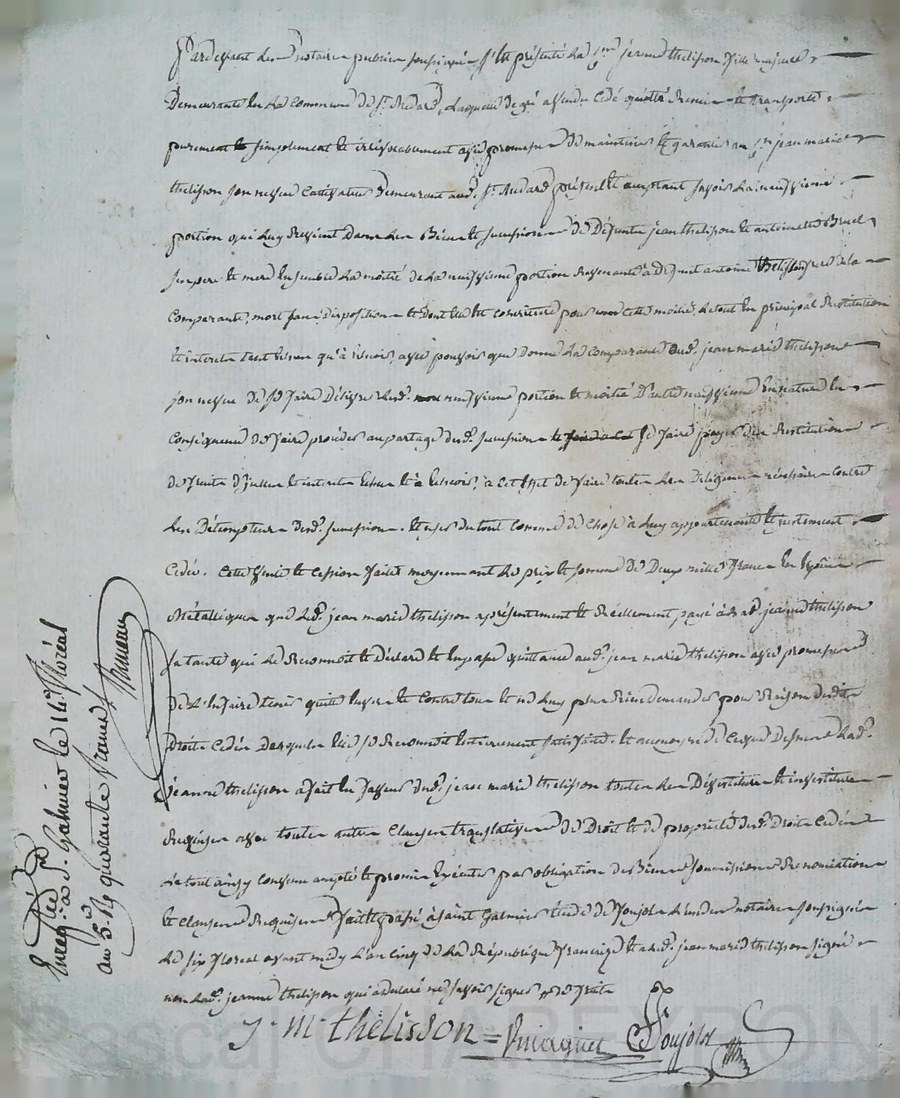 Pardevant les notaires publics soussignés s'est présenté la c.nne jeanne thelisson fille majeure
Demeurante en la commune de s.t Médard, laquelle de gré a vendu cédé quitté remis et transporté
purement et simplement et irrévocablement avec promesse de maintenir et garantir au c.en jean marie
thelisson son neveu cultivateur demeurant aud. s.t Médard présent et acceptant savoir la neuvieme
portion qui luy revient dans les Biens et succession de Défunts jean thelisson et antoinette Bruel
ses pere et mere ensemble la moitié de la neuvieme portion revenante à défunt antoine thelisson frere de la
comparante, mort sans disposition et dont elle est héritiere pour cette moitié, le tout en principal restitution
et interets tant échus qu'à échoir, avec pouvoir que donne la comparante aud. jean marie thelisson
son neveu de se faire délivrer lesd. neuvieme portion et moitié d'autre neuvieme en nature en
conséquence de faire procéder au partage desd. succession se faire payer des restitutions
de fruits d'iceux et interets échus et à échoir, à cet effet de faire toutes les diligences nécessaires contre
les Détempteurs desd. succession. et user du tout comme de chose à luy appartenante et justement
cédée. Cette vente et cession faite moyennant le prix et somme de Deux mille francs en especes
métalliques que led. jean marie thelisson a présentement et réellement payé à lad. jeanne thelisson
sa tante qui le reconnoit et déclare et en passe quittance aud. jean marie thelisson avec promesse
de l'en faire tenir quitte envers et contre tous et ne luy plus rien demander pour raison desdits
Droits cédés desquels elle se reconnoit entierement satisfaite. et au moyen de ce que dessus lad.
jeanne thelisson a fait en faveur dud. jean marie thelisson toutes les Dévestitures et investitures
requises avec toutes autres clauses translatives de Droit et de propriété desd. Droits cédés
le tout ainsy convenu accepté et promis exécuter par obligation de Biens soumissions renonciations
et clauses requises. fait et passé à saint Galmier étude de Poujols l'un des notaires soussignés
le six floréal avant midy l'an cinq de la République française et a led. jean marie thelisson signé
non lad. jeanne thelisson qui a déclaré ne savoir signer
J. M. thélisson = Poujols
Enreg.é à S.t Galmier le 16 floréal
an 5. R. quarante francs